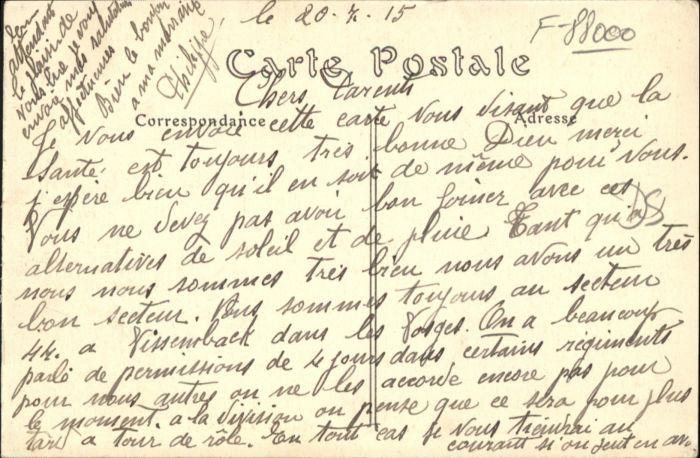 le 20-7-15
F-88000
Carte Postale
Chers Parents
Correspondance
Adresse
Je vous envoie cette carte vous disant que la
santé est toujours très bonne Dieu merci
j'espère bien qu'il en soit de même pour vous.
Vous ne devez pas avoir bon foiner avec ces
alternatives de soleil et de pluie Tant qu'à
nous nous sommes très bien nous avons un très
bon secteur. Nous sommes toujours au secteur
44. a Vissemback dans les Vosges. On a beaucoup
parlé de permissions de 4 jours dans certains régiments
pour nous autres on ne les accorde encore pas pour
le moment. a la division on pense que ce sera pour plus
tard a tour de rôle. En tout cas je vous tiendrai au
courant si on peut en av.
En
attendant
le plaisir de
vous lire je vous
envoie mes salutations
affectueuses
Bien le bonjour
a ma marraine
Philippe